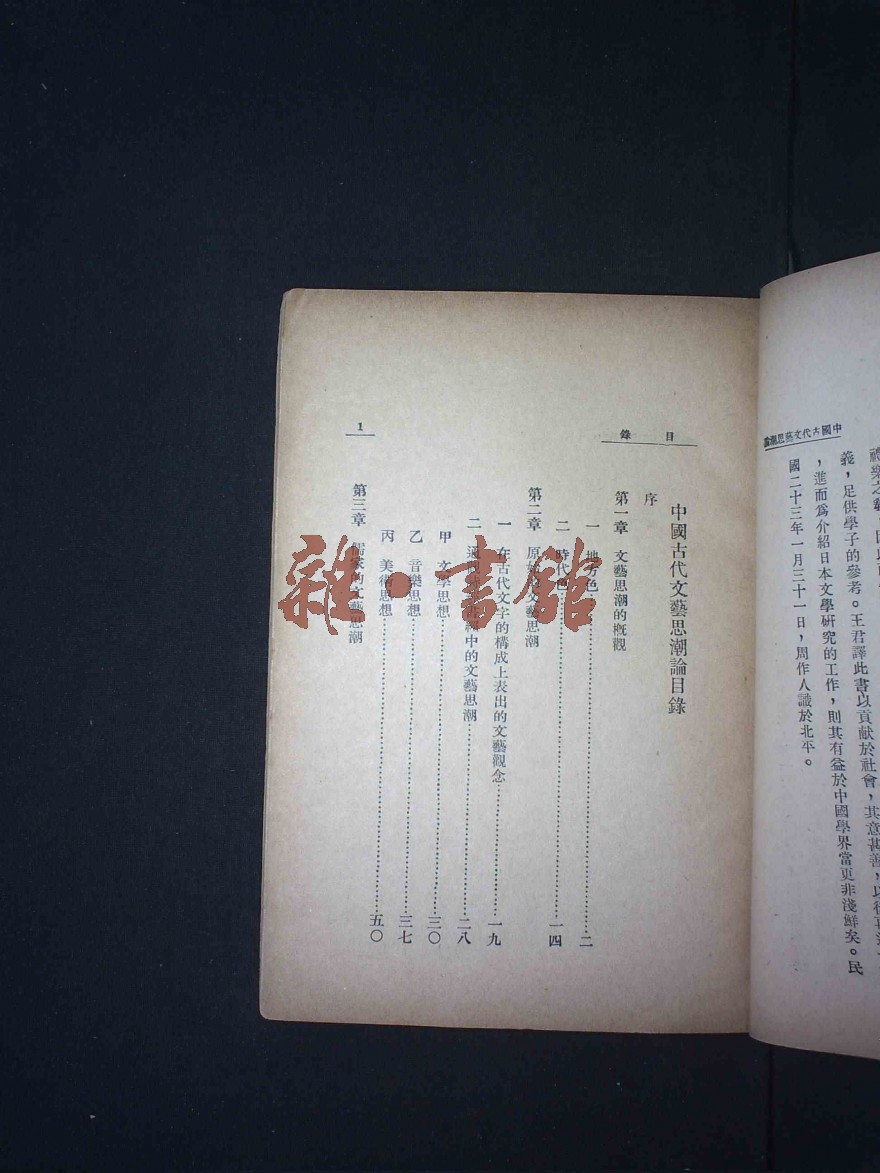 中國古代文藝思潮論
禮樂之
義，足供學子的參考。王君譯此書以貢献於社會，其意甚善，以後再
，進而爲介紹日本文學研究的工作，則其有益於中國學界當更非淺鮮矣。民
國二十三年一月三十一日，周作人識於北平。
目錄
中國古代文藝思潮論目錄
序
第一章 文藝思潮的概觀
一 地方色……二
二 時代色……一四
第二章 原始的文藝思潮
一 在古代文字的構成上表出的文藝觀念……一九
二 中的文藝思潮……二八
甲 文學思想……三〇
乙 音樂思想……三七
丙 美術思想……五〇
第三章 儒家的文藝思潮
1
雜·書館